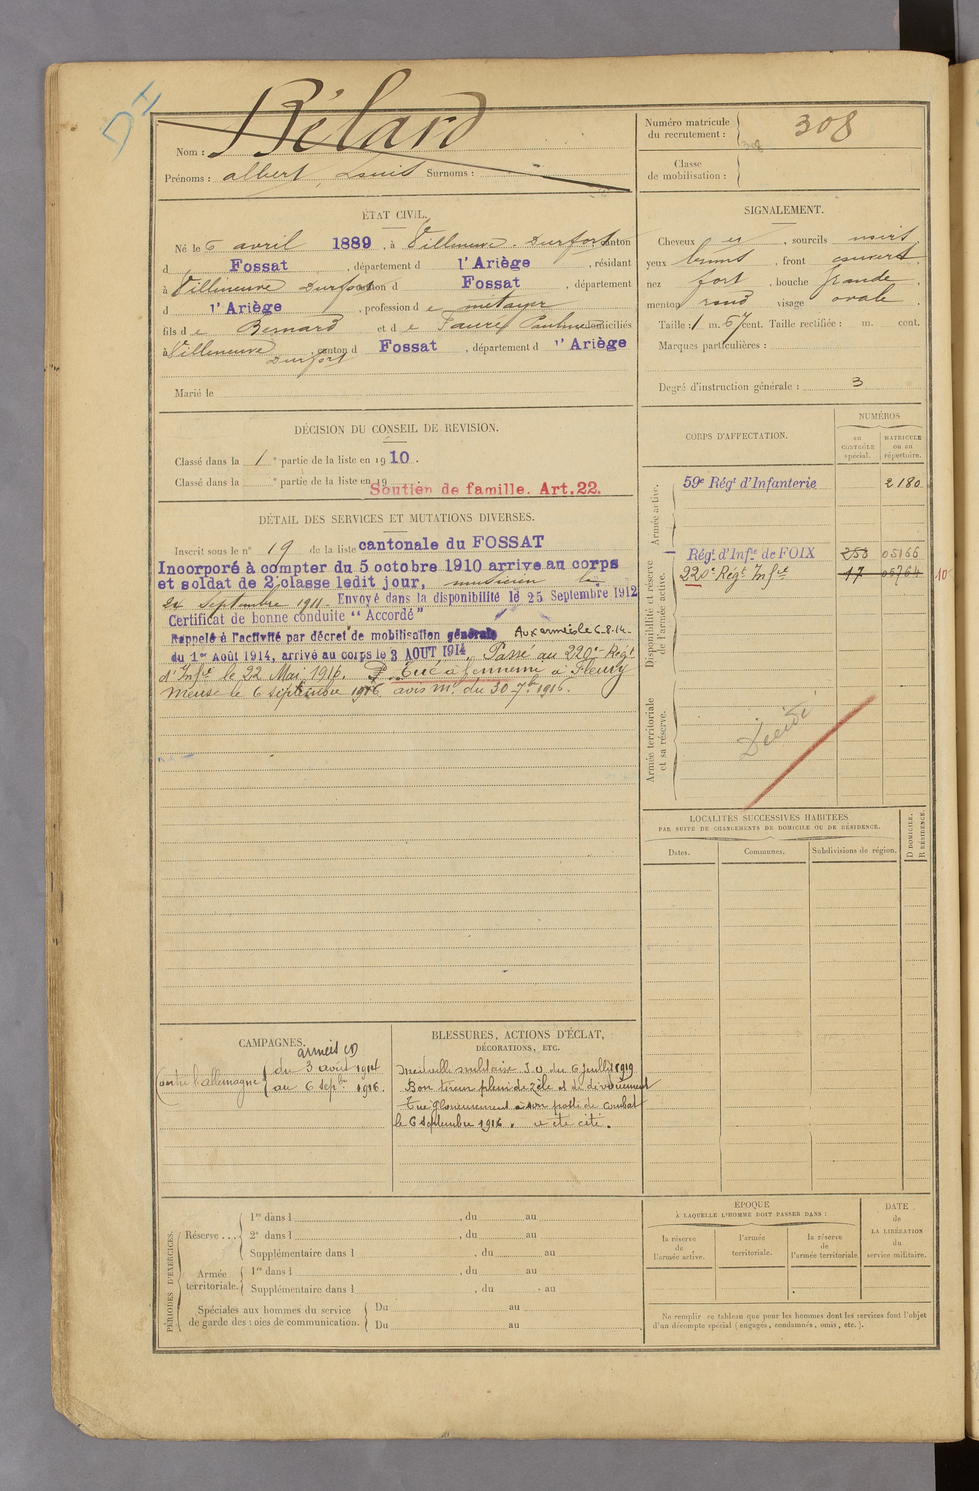 DH
Nom : Bélard
Prénoms : albert Louis Surnoms :
Numéro matricule du recrutement : 308
308
Classe de mobilisation :
ÉTAT CIVIL.
Né le 6 avril 1889, à Villeneuve-Durfort, canton
d Fossat, département d l'Ariège, résidant
à Villeneuve Durfort canton d Fossat, département
d l'Ariège, profession de métayer
fils de Bernard et de Faure Pauline domiciliés
à Villeneuve Durfort canton d Fossat, département d l'Ariège
Marié le
SIGNALEMENT.
Cheveux et, sourcils noirs,
yeux bruns, front couvert,
nez fort, bouche grande,
menton rond visage ovale.
Taille : 1 m. 67 cent. Taille rectifiée : m. cent.
Marques particulières :
Degré d'instruction générale : 3
DÉCISION DU CONSEIL DE REVISION.
Classé dans la 1e partie de la liste en 1910.
Classé dans la e partie de la liste en 19
Soutien de famille. Art.22.
DÉTAIL DES SERVICES ET MUTATIONS DIVERSES.
Inscrit sous le n° 19 de la liste cantonale du FOSSAT
Incorporé à compter du 5 octobre 1910 arrive au corps
et soldat de 2e classe ledit jour, musicien le
24 Septembre 1911. Envoyé dans la disponibilité le 25 Septembre 1912
Certificat de bonne conduite "Accordé"
Rappelé à l'activité par décret de mobilisation générale Aux armées le 6-8-14.
du 1er Août 1914, arrivé au corps le 3 AOUT 1914. Passé au 220e Régt
d'Infie le 22 Mai 1916. Tué à l'ennemi à Fleury
Meuse le 6 septembre 1916 avis ml du 30-7bre 1916.
CORPS D'AFFECTATION.
NUMÉROS
au CONTRÔLE spécial.
MATRICULE ou au répertoire.
Armée active.
59e Régt d'Infanterie 2180
Disponibilité et réserve de l'armée active.
Régt d'Infie de FOIX 258 05166
220e Régt Infie 17 05764 10
Armée territoriale et sa réserve.
Décédé
LOCALITÉS SUCCESSIVES HABITÉES
PAR SUITE DE CHANGEMENTS DE DOMICILE OU DE RÉSIDENCE.
Dates. Communes. Subdivisions de région. D DOMICILE. R RÉSIDENCE.
CAMPAGNES.
armées (D)
Contre l'allemagne du 3 août 1914
au 6 sepbre 1916.
BLESSURES, ACTIONS D'ÉCLAT,
DÉCORATIONS, ETC.
Médaille militaire J.O du 6 Juillet 1919
Bon tireur plein de zèle et de dévouement
Tué glorieusement à son poste de combat
le 6 septembre 1916. a été cité.
PÉRIODES D'EXERCICES.
Réserve ...
1re dans l , du au
2e dans l , du au
Supplémentaire dans l , du au
Armée territoriale.
1re dans l , du au
Supplémentaire dans l , du au
Spéciales aux hommes du service de garde des voies de communication.
Du au
Du au
ÉPOQUE
À LAQUELLE L'HOMME DOIT PASSER DANS :
la réserve de l'armée active.
l'armée territoriale.
la réserve de l'armée territoriale
DATE de LA LIBÉRATION du service militaire.
Ne remplir ce tableau que pour les hommes dont les services font l'objet
d'un décompte spécial (engagés, condamnés, omis, etc.).